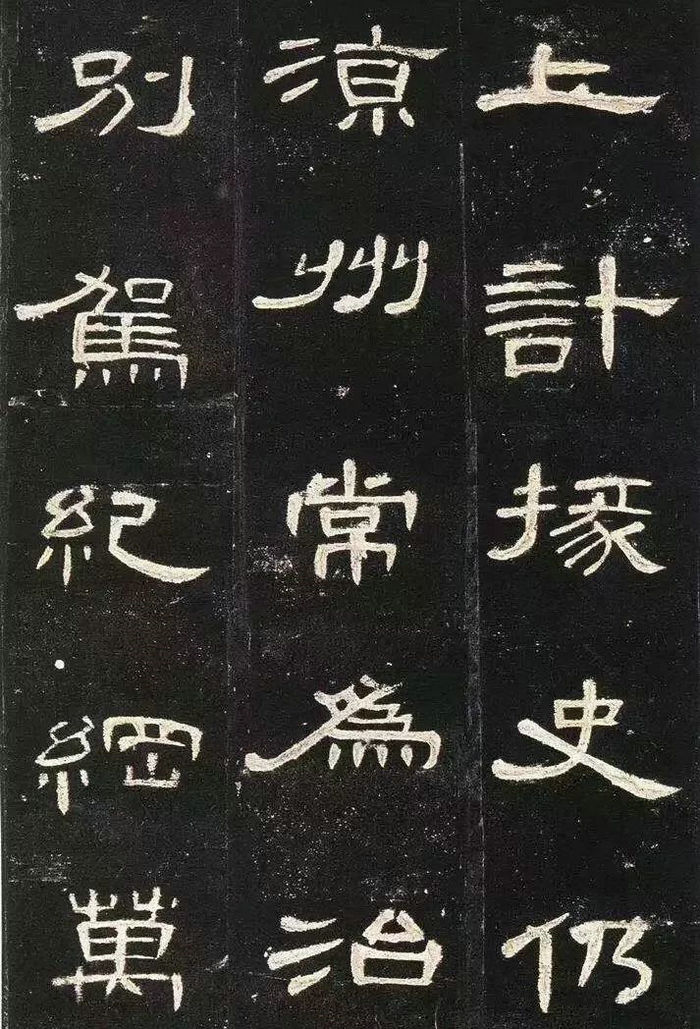 上計掾史仍
涼州常為治
別駕紀綱萬